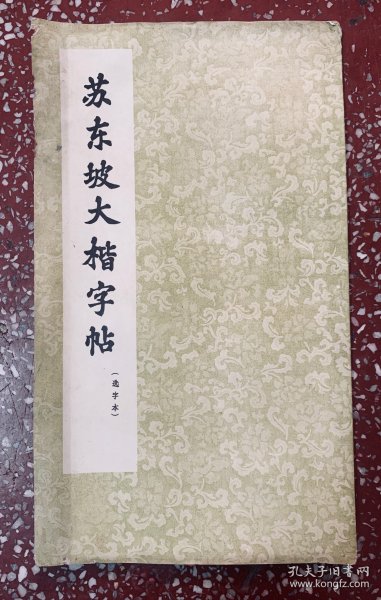 苏东坡大楷字帖
(选字本)
孔夫子旧书网
www.kongfz.com